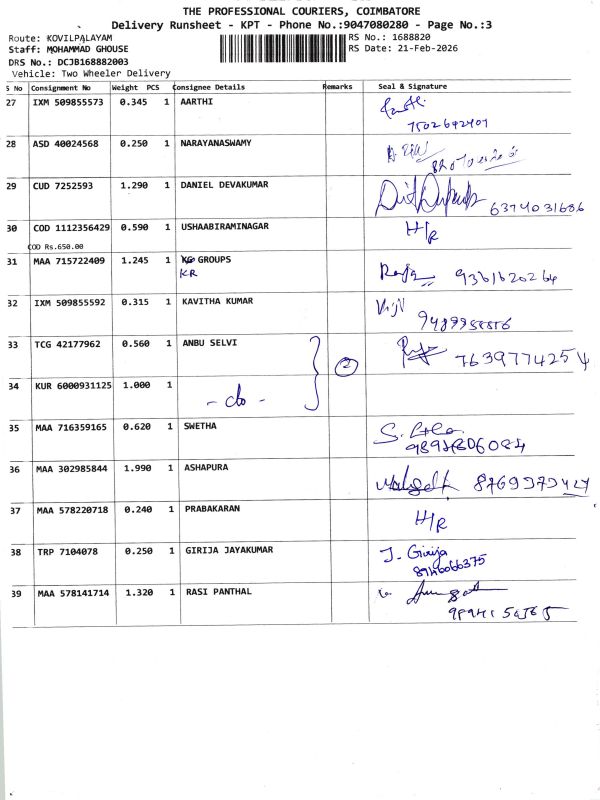 THE PROFESSIONAL COURIERS, COIMBATORE
Delivery Runsheet - KPT - Phone No.:9047080280 - Page No.:3
Route: KOVILPALAYAM
RS No.: 1688820
Staff: MOHAMMAD GHOUSE
RS Date: 21-Feb-2026
DRS No.: DCJB168882003
Vehicle: Two Wheeler Delivery
S No Consignment No Weight PCS Consignee Details Remarks Seal & Signature
27 IXM 509855573 0.345 1 AARTHI
7502692407
28 ASD 40024568 0.250 1 NARAYANASWAMY
29 CUD 7252593 1.290 1 DANIEL DEVAKUMAR
6374031686
30 COD 1112356429 0.590 1 USHAABIRAMINAGAR H/R
COD Rs.650.00
31 MAA 715722409 1.245 1 KG GROUPS
KR
Raja 9361620264
32 IXM 509855592 0.315 1 KAVITHA KUMAR
33 TCG 42177962 0.560 1 ANBU SELVI
2 7639774254
34 KUR 6000931125 1.000 1
- do -
35 MAA 716359165 0.620 1 SWETHA
36 MAA 302985844 1.990 1 ASHAPURA
8769979427
37 MAA 578220718 0.240 1 PRABAKARAN
H/R
38 TRP 7104078 0.250 1 GIRIJA JAYAKUMAR
J. Girija
8946066375
39 MAA 578141714 1.320 1 RASI PANTHAL